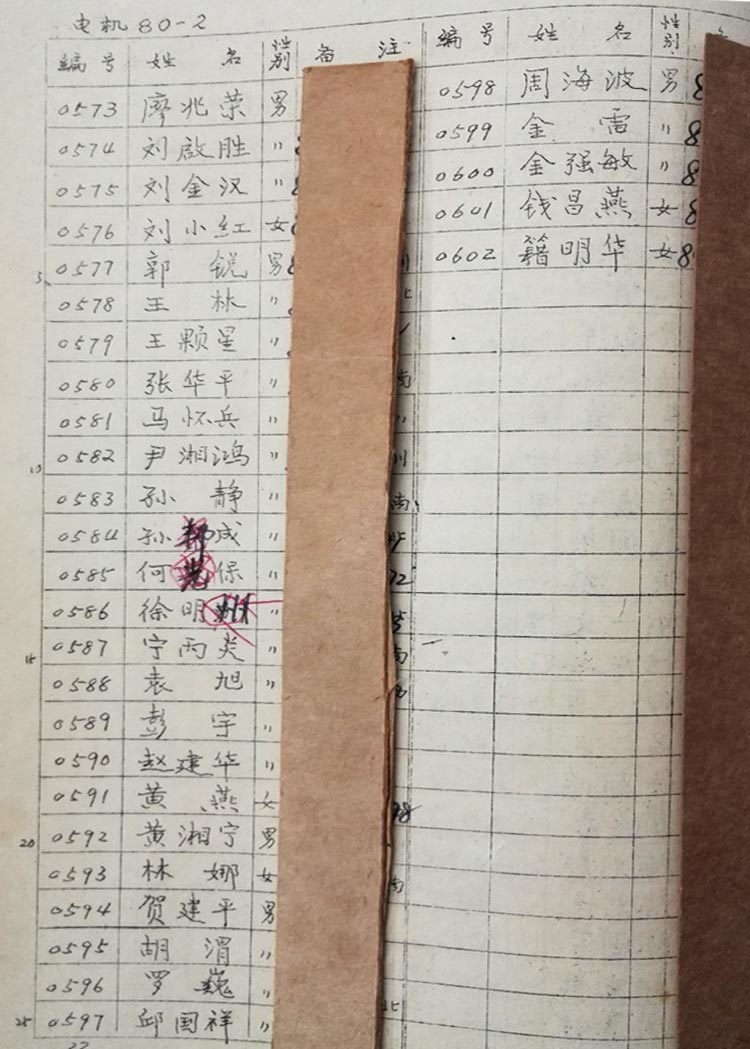 电机80-2
编号 姓名 性别 备注
0573 廖兆荣 男
0574 刘啟胜 〃
0575 刘金汉 〃
0576 刘小红 女
0577 郭锐 男
5
0578 王林 〃
0579 王颗星 〃
0580 张华平 〃
0581 马怀兵 〃
0582 尹湘鸿 〃
10
0583 孙静 〃
0584 孙邦成 〃
0585 何光保 〃
0586 徐明州 〃
0587 宁丙炎 〃
15
0588 袁旭 〃
0589 彭宇 〃
0590 赵建华 〃
0591 黄燕 女
20 0592 黄湘宁 男
0593 林娜 女
0594 贺建平 男
0595 胡渭 〃
0596 罗巍 〃
25 0597 邱国祥 〃
编号 姓名 性别
0598 周海波 男 8
0599 金雷 〃 8
0600 金强敏 〃 8
0601 钱昌燕 女 8
0602 籍明华 女 8